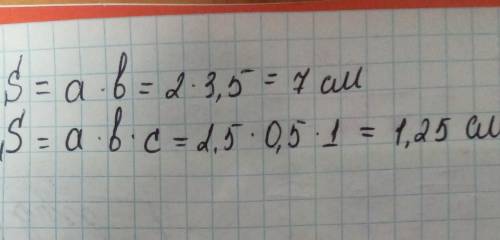 S = a · b = 2 · 3,5 = 7 см
S = a · b · c = 2,5 · 0,5 · 1 = 1,25 см